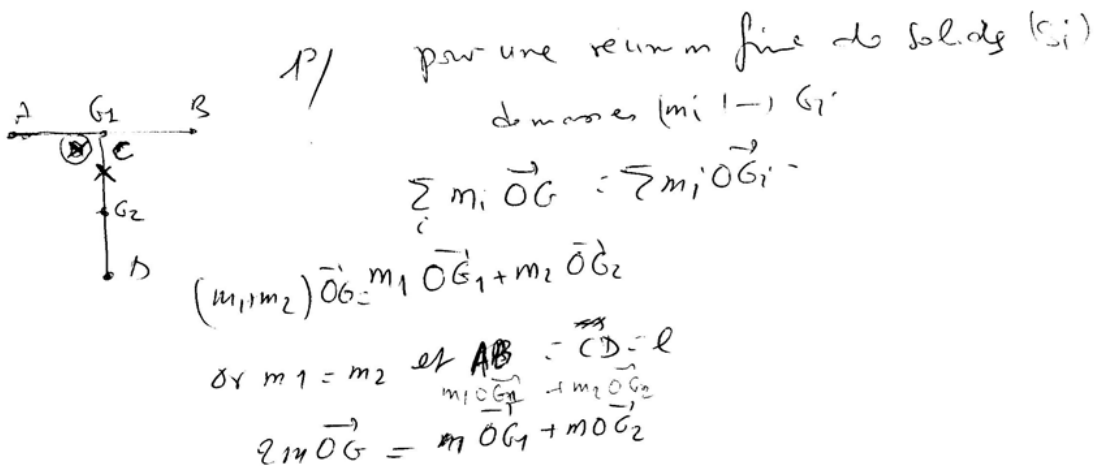 1°/ pour une reunion finie de solides (Si)
de masses (mi ) Gi
A G1 B
C
G2
D
\sum_i m_i \vec{OG} = \sum m_i \vec{OG_i}
(m_1+m_2) \vec{OG} = m_1 \vec{OG_1} + m_2 \vec{OG_2}
or m1 = m2 et AB = CD = l
m_1 \vec{OG_1} + m_2 \vec{OG_2}
2m \vec{OG} = m \vec{OG_1} + m \vec{OG_2}